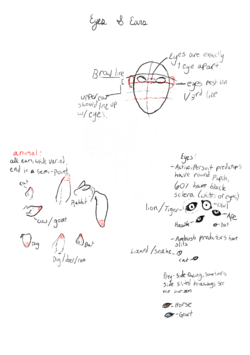 Eyes & Ears
eyes are exactly
1 eye apart
Browline
eyes rest on
1/3rd line
upper ear
should line up
w/ eyes.
animal:
all ears wide varied,
end in a semi-point
cat
Rabbit
cow/goat
Dog
Dog/deer/
Bat
Eyes
-Active/Pursuit predators
have round Pupils,
60% have black
sclera (whites of eyes)
Lion/Tiger
owl
APE
Hawk
bat
-Ambush predators have
slits
Lizard/snake
cat
Prey- side facing,
side slits to
Horse
Goat